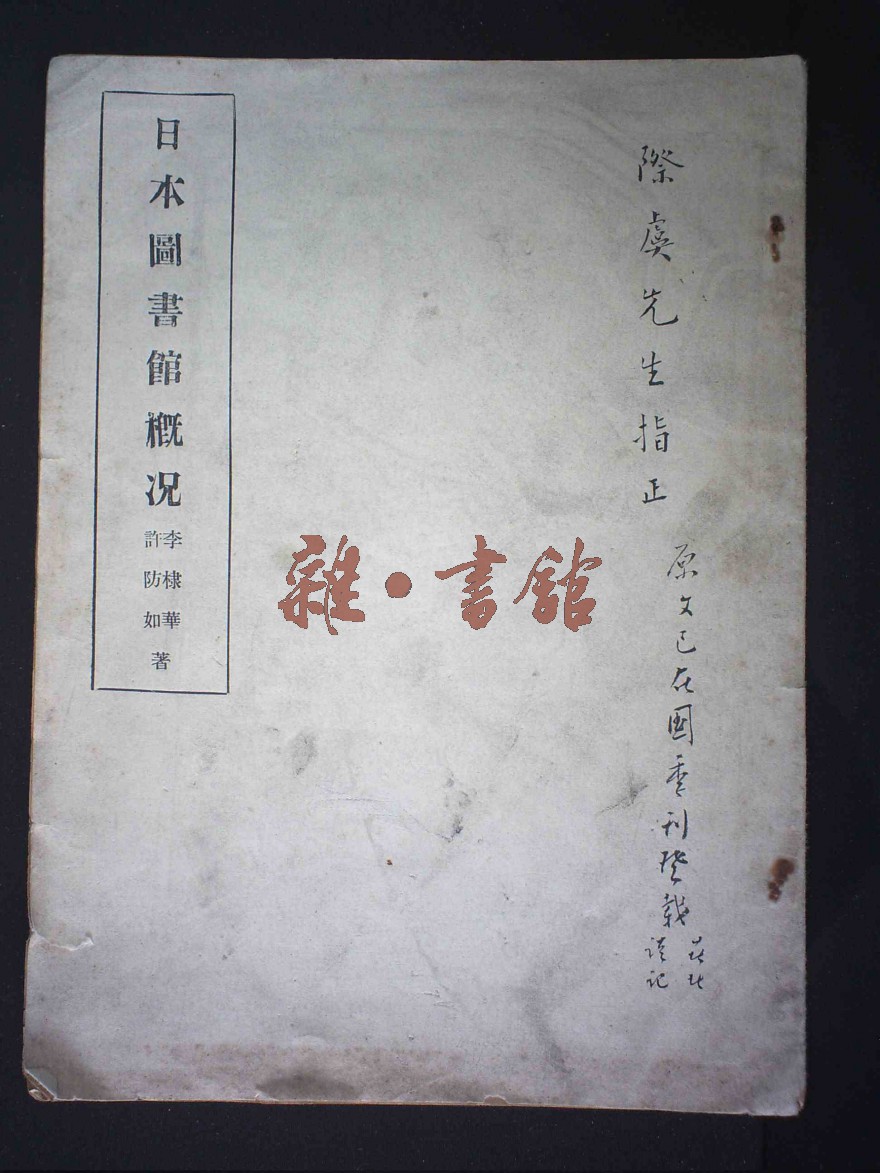 際虞先生指正
原文已在國季刊登載
謹記
日本圖書館概况
李棣華
許防如
著
雜·書館